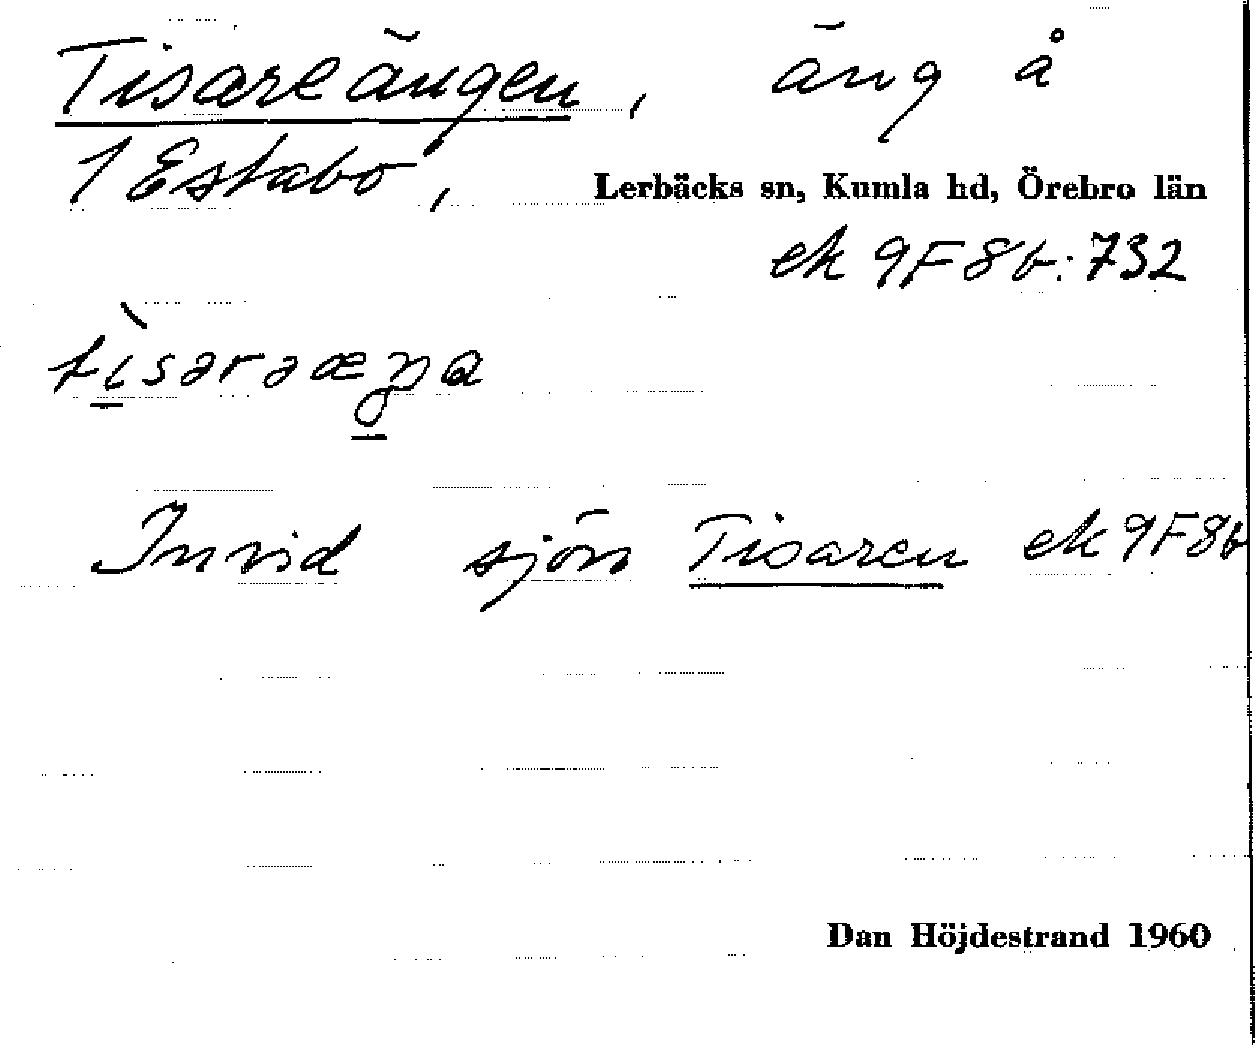 Tisareängen, äng å
1 Estabo, Lerbäcks sn, Kumla hd, Örebro län
ek 9F8b:732
tìsərəæŋa
Invid sjön Tisaren ek 9F8b
Dan Höjdestrand 1960